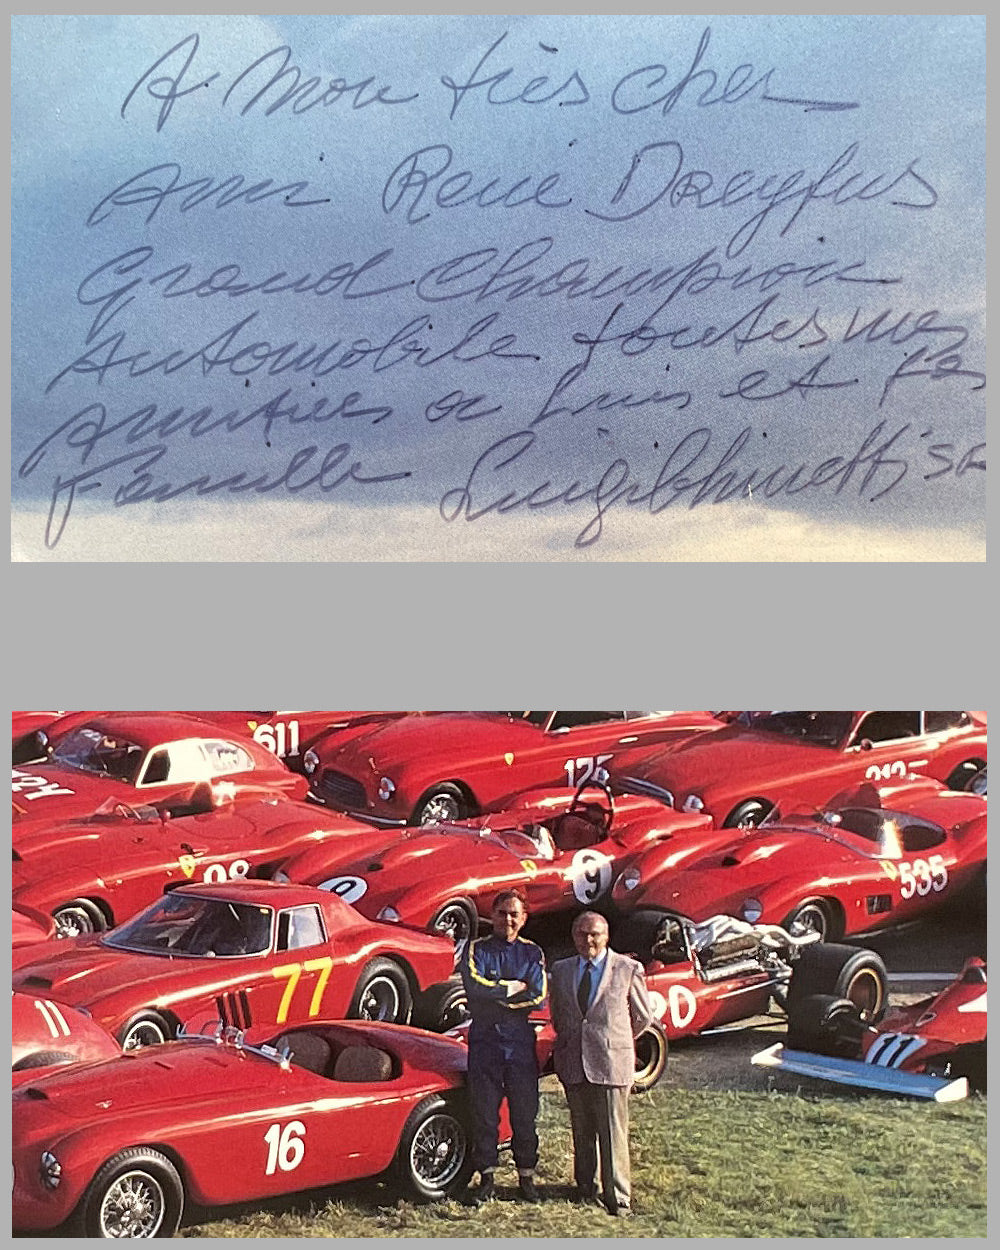 A Mon très cher
Ami René Dreyfus
Grand Champion
Automobile toutes mes
Amitiés a Lui et sa
Famille Luigi Chinetti SR
611
98
9
9
535
77
11
20
11
16